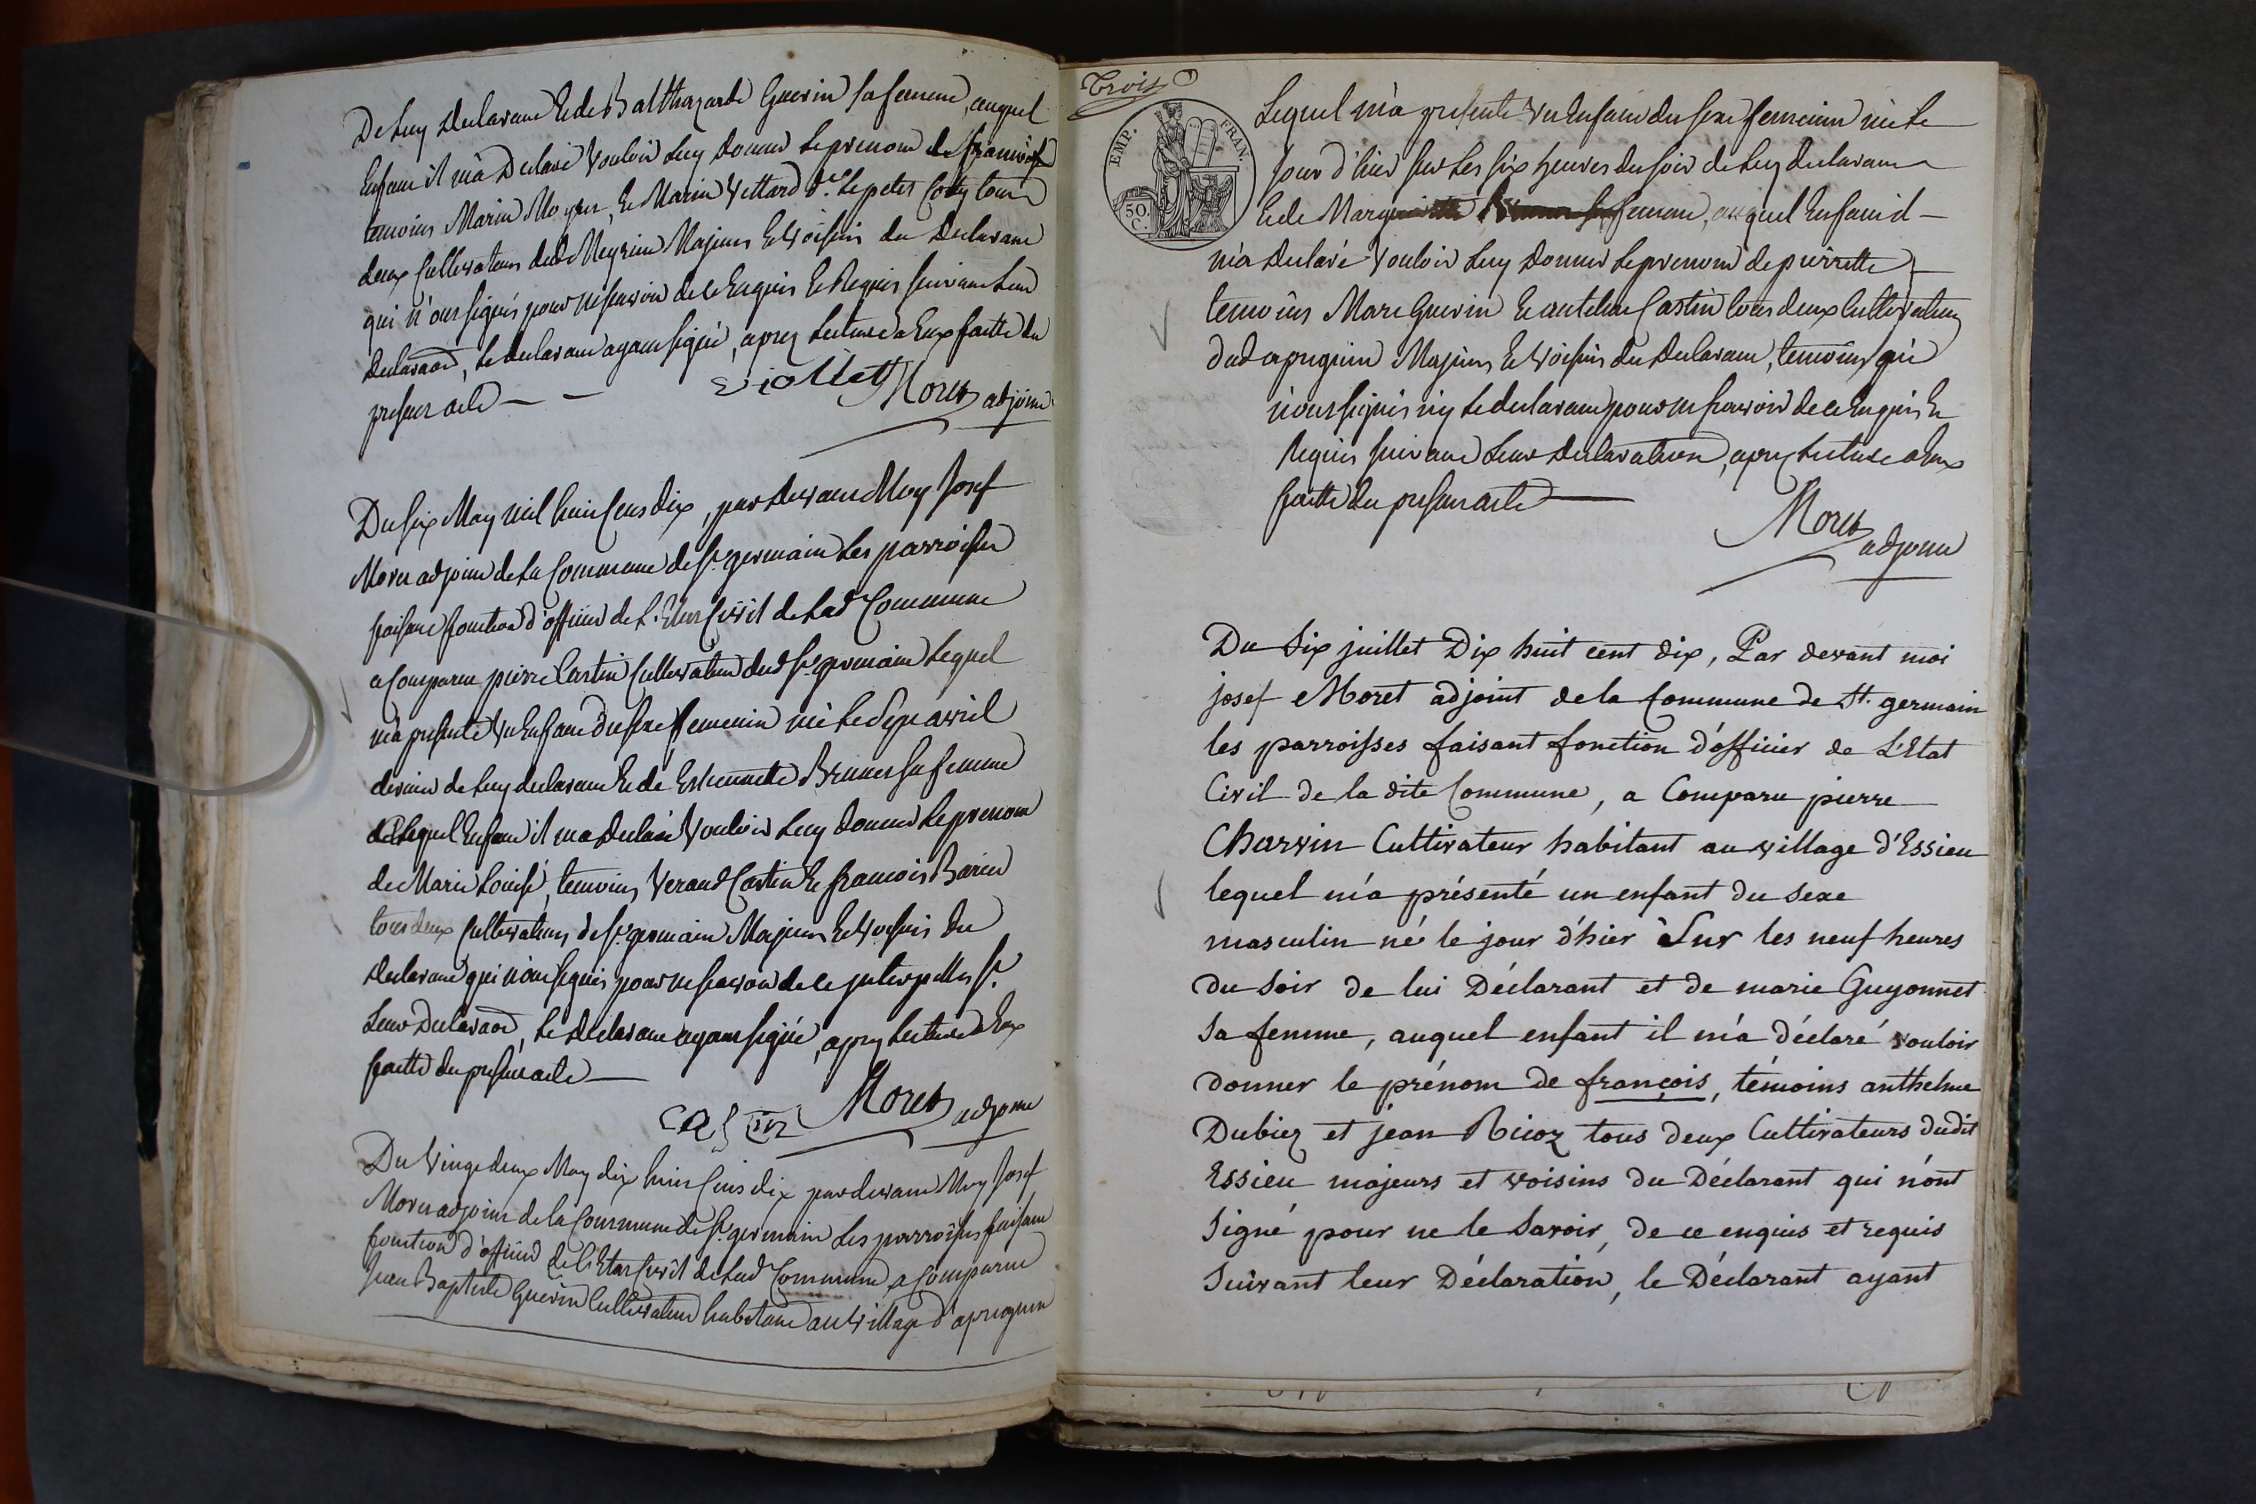 De luy declarant & de Balthazarde Guerin sa femme, auquel
Enfant il m'a Declaré vouloir luy donner le prenom de françois
temoins Marin Moyen, & Marin Vettard dt. le petet Cody tous
deux Cultivateurs dud Meyrieu Majeurs & voisins du Declarant
qui n'ont signés pour ne savoir de ce Enquis & Requis suivant leur
declaraon, le declarant ayant signé, aprez lecture a Eux faitte du
present acte — —
Viollet Moret adjoint
Du six May mil huit cens dix, par devant Moy Josef
Moret adjoint de la Commune de St. germain les parroisses
faisant fonction d'officier de l'Etat Civil de lad Commune
a Comparu pierre Castin Cultivateur dud St. germain lequel
m'a presenté un Enfant du sexe femenin né le Sept avril
dernier de luy declarant & de Estiennette Brunet sa femme
lequel Enfant il m'a declaré Vouloir luy donner le prenom
de Marie Louise, temoins Verand Castin & francois Barin
tous deux Cultivateurs de St. germain Majeurs & Voisins du
declarant qui n'ont signés pour ne savoir de ce interpellés St.
leur Declaraon, le declarant ayant signé, aprez lecture a Eux
faitte du present acte —
CASTIN Moret adjoint
Du Vingt deux May dix huit Cens dix par devant Moy Josef
Moret adjoint de la Commune de St. germain les parroisses faisant
fonction d'officier de l'Etat Civil de lad Commune a Comparu
Jean Baptiste Guerin Cultivateur habitant au Village d'apregnin
Trois
EMP. FRAN.
50. C.
Lequel m'a presenté un Enfant du sexe femenin née le
Jour d'hier sur les six heures du soir de luy declarant
& de femme, auquel Enfant il
m'a declaré Vouloir luy donner le prenom de pierrette
temoins Marc Guerin & antelme Castin tous deux Cultivateurs
dud apregnin Majeurs & Voisins du declarant, temoins qui
n'ont signés ny le declarant pour ne scavoir de ce Enquis &
Requis suivant leur declaration, aprez lecture a Eux
faitte du present acte —
Moret
adjoint
Du Six juillet Dix huit cent dix, Par devant moi
josef Moret adjoint de la Commune de St. germain
les parroisses faisant fonction d'officier de L'Etat
Civil de la dite Commune, a Comparu pierre
Charvin Cultivateur habitant au village d'Essieu
lequel m'a présenté un enfant du sexe
masculin né le jour d'hier Sur les neuf heures
du soir de lui Déclarant et de marie Guyonnet
sa femme, auquel enfant il m'a déclaré vouloir
donner le prénom de françois, témoins anthelme
Dubiez et jean Ricoz tous deux Cultivateurs dudit
Essieu majeurs et voisins du Déclarant qui n'ont
Signé pour ne le Savoir, de ce enquis et requis
Suivant leur Déclaration, le Déclarant ayant